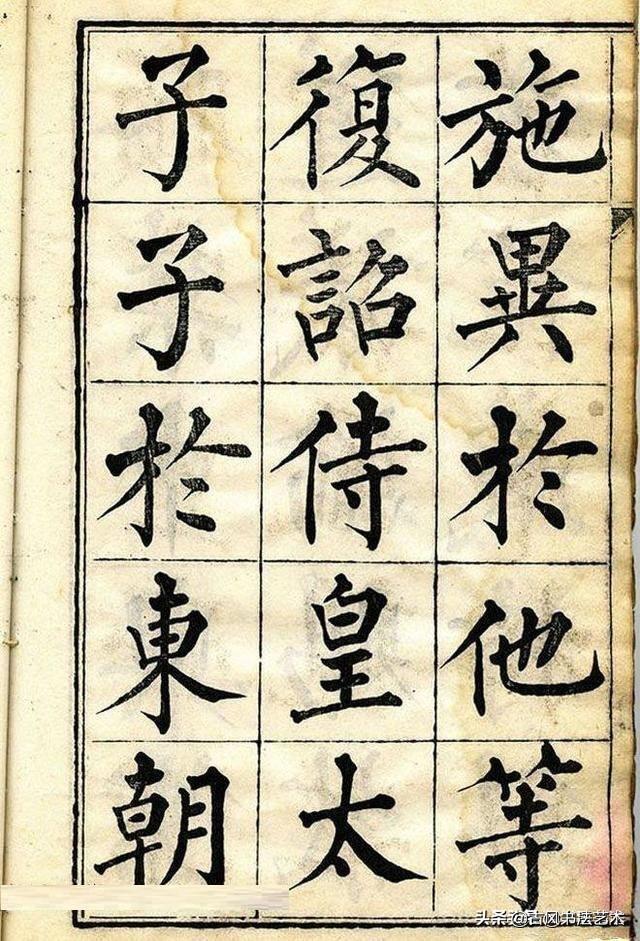 施異於他等
復詔侍皇太
子子於東朝
头条@古风书法艺术